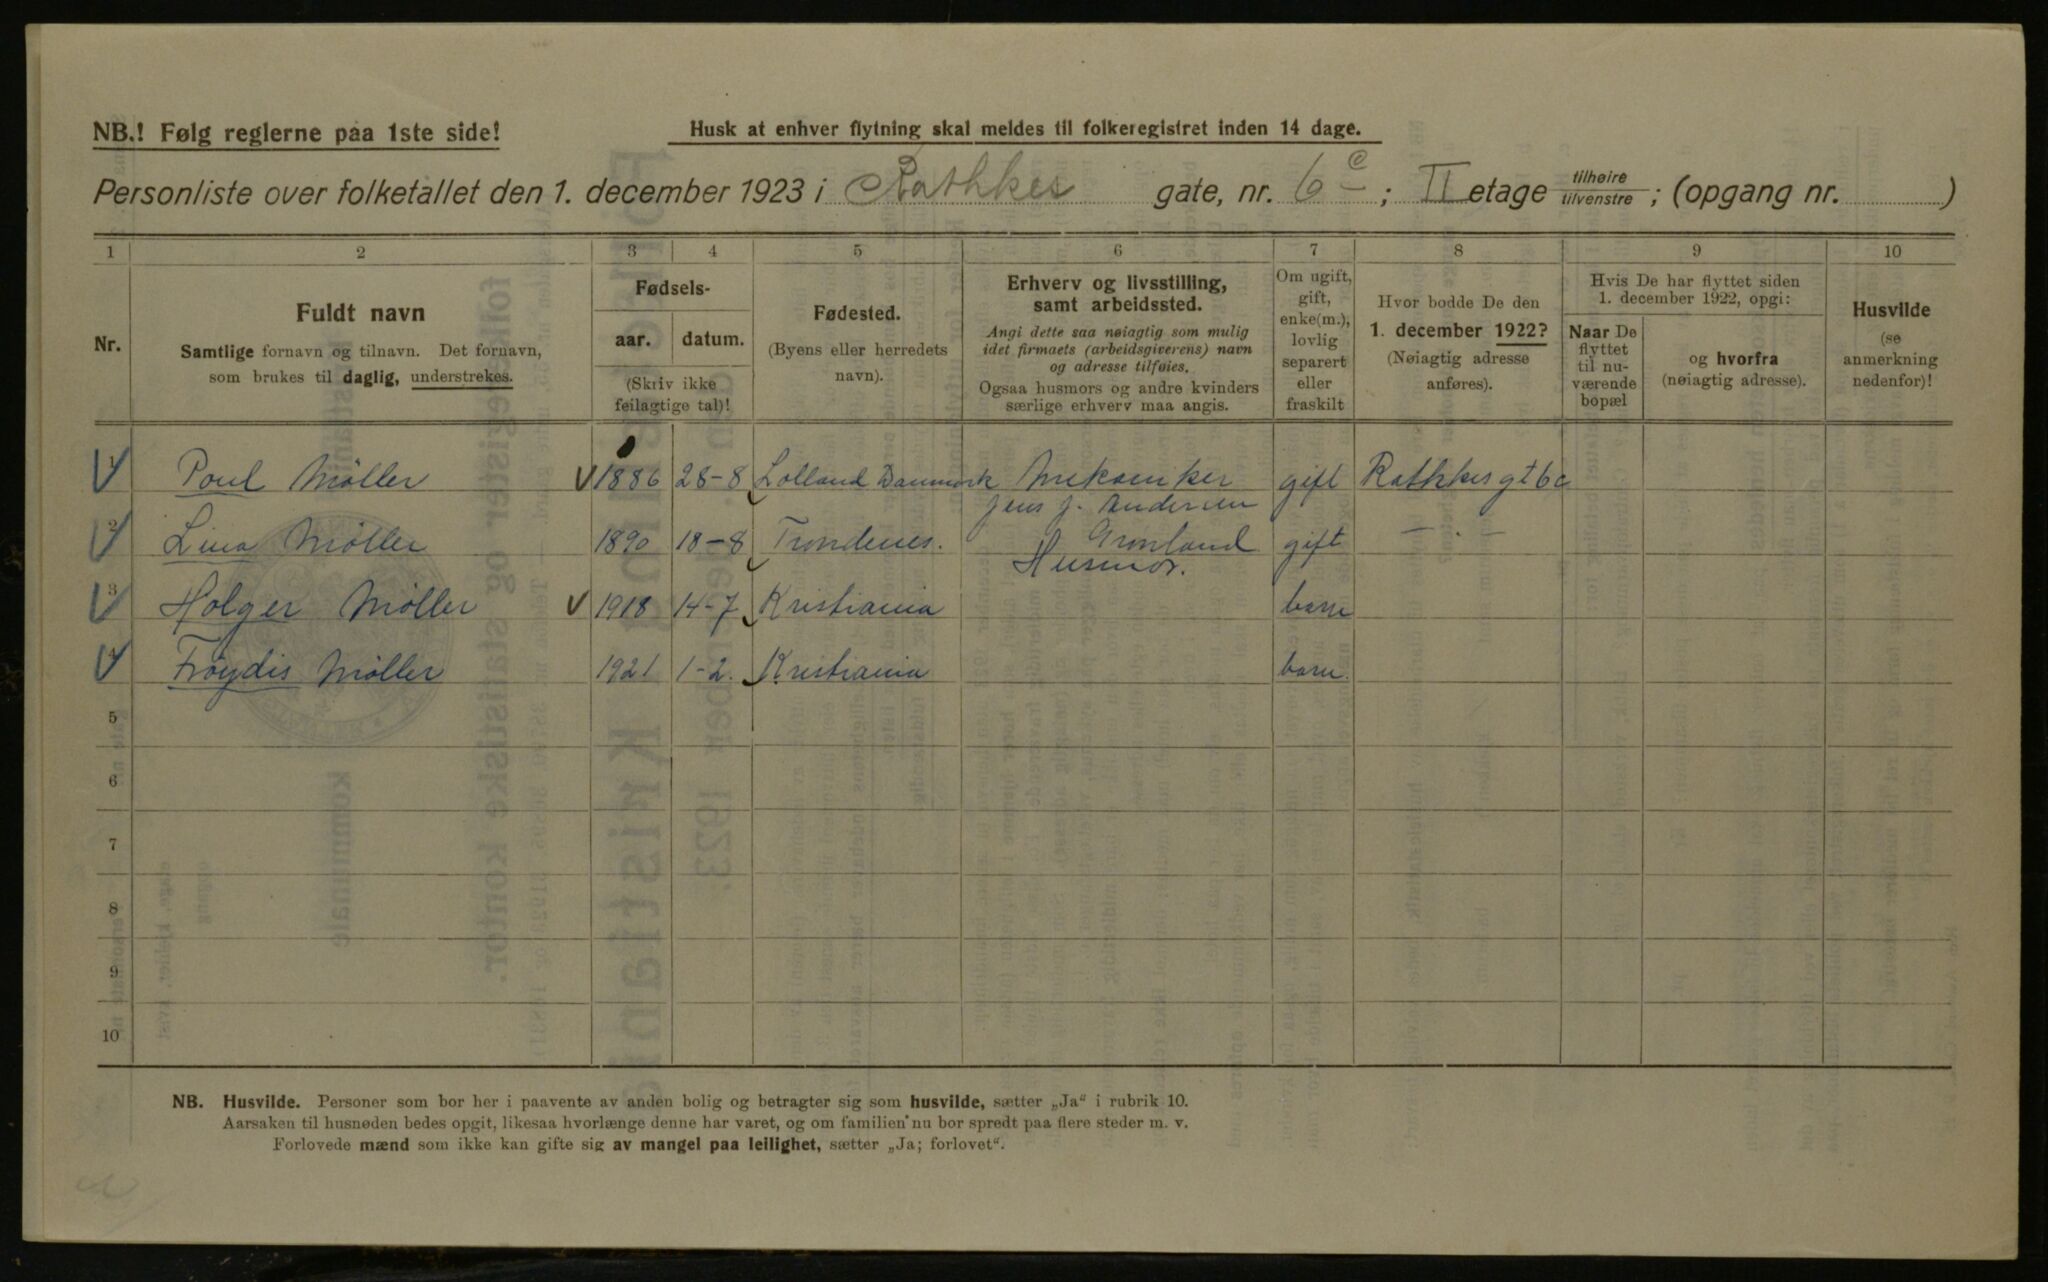 NB.! Følg reglerne paa 1ste side!
Husk at enhver flytning skal meldes til folkeregistret inden 14 dage.
Personliste over folketallet den 1. december 1923 i Rathkes gate, nr. 6c ; II etage tilhøire tilvenstre ; (opgang nr. )
1 2 3 4 5 6 7 8 9 10
Nr.
Fuldt navn
Samtlige fornavn og tilnavn. Det fornavn,
som brukes til daglig, understrekes.
Fødsels-
aar. datum.
(Skriv ikke
feilagtige tal)!
Fødested.
(Byens eller herredets
navn).
Erhverv og livsstilling,
samt arbeidssted.
Angi dette saa nøiagtig som mulig
idet firmaets (arbeidsgiverens) navn
og adresse tilføies.
Ogsaa husmors og andre kvinders
særlige erhverv maa angis.
Om ugift,
gift,
enke(m.),
lovlig
separert
eller
fraskilt
Hvor bodde De den
1. december 1922?
(Nøiagtig adresse
anføres).
Hvis De har flyttet siden
1. december 1922, opgi:
Naar De
flyttet
til nu-
værende
bopæl
og hvorfra
(nøiagtig adresse).
Husvilde
(se
anmerkning
nedenfor)!
1 Poul Møller 1886 28-8 Lolland Danmark Mekaniker gift Rathkesgt 6c
Jens J. Andersen
Grønland
2 Lina Møller 1890 18-8 Trondenes. Husmor. gift — " —
3 Holger Møller 1918 14-7 Kristiania barn
4 Frøydis Møller 1921 1-2. Kristiania barn.
5
6
7
8
9
10
NB. Husvilde. Personer som bor her i paavente av anden bolig og betragter sig som husvilde, sætter „Ja" i rubrik 10.
Aarsaken til husnøden bedes opgit, likesaa hvorlænge denne har varet, og om familien nu bor spredt paa flere steder m. v.
Forlovede mænd som ikke kan gifte sig av mangel paa leilighet, sætter „Ja; forlovet".